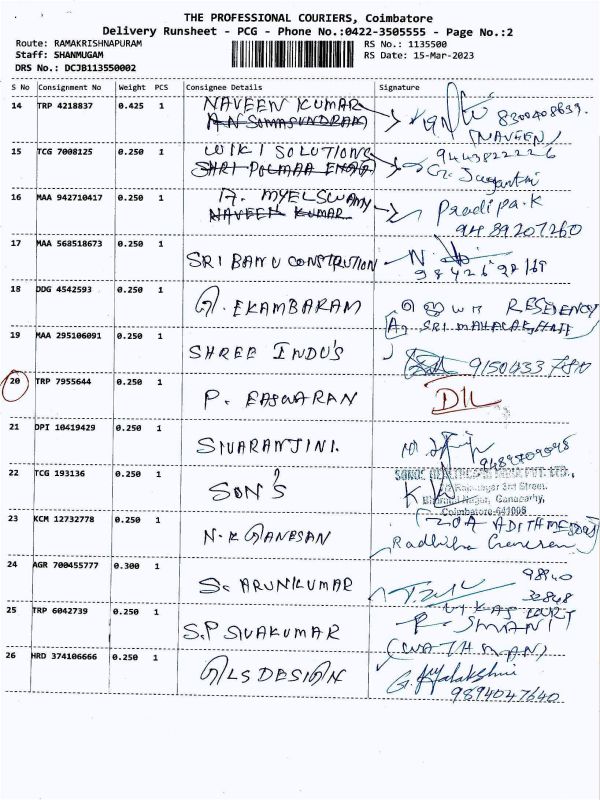 THE PROFESSIONAL COURIERS, Coimbatore
Delivery Runsheet - PCG - Phone No.:0422-3505555 - Page No.:2
Route: RAMAKRISHNAPURAM RS No.: 1135500
Staff: SHANMUGAM RS Date: 15-Mar-2023
DRS No.: DCJB113550002
S No Consignment No Weight PCS Consignee Details Signature
14 TRP 4218837 0.425 1 NAVEEN KUMAR
A.N SOMASUNDRAM
(NAVEEN)
15 TCG 7008125 0.250 1 WIKI SOLUTIONS 9443822226
SHRI
16 MAA 942710417 0.250 1 A. MYELSWAMY Pradipa.K
NAVEEN KUMAR 9489207260
17 MAA 568518673 0.250 1 SRI BANU CONSTRUTION
18 DDG 4542593 0.250 1 G. EKAMBARAM RESEDENCY
19 MAA 295106091 0.250 1 SHREE INDU'S
20 TRP 7955644 0.250 1 P. EASWARAN D/L
21 DPI 10419429 0.250 1 SIVARANJINI.
22 TCG 193136 0.250 1 SON'S
3rd Street,
Nagar, Ganapathy,
Coimbatore-641006
23 KCM 12732778 0.250 1 N.K GANESAN
Radhika Ganesan
24 AGR 700455777 0.300 1 S. ARUNKUMAR 98940
32848
25 TRP 6042739 0.250 1 S.P SIVAKUMAR R. SMANI
(WATHMAN)
26 HRD 374106666 0.250 1 GLS DESIGN G. Jayalakshmi
9894047640